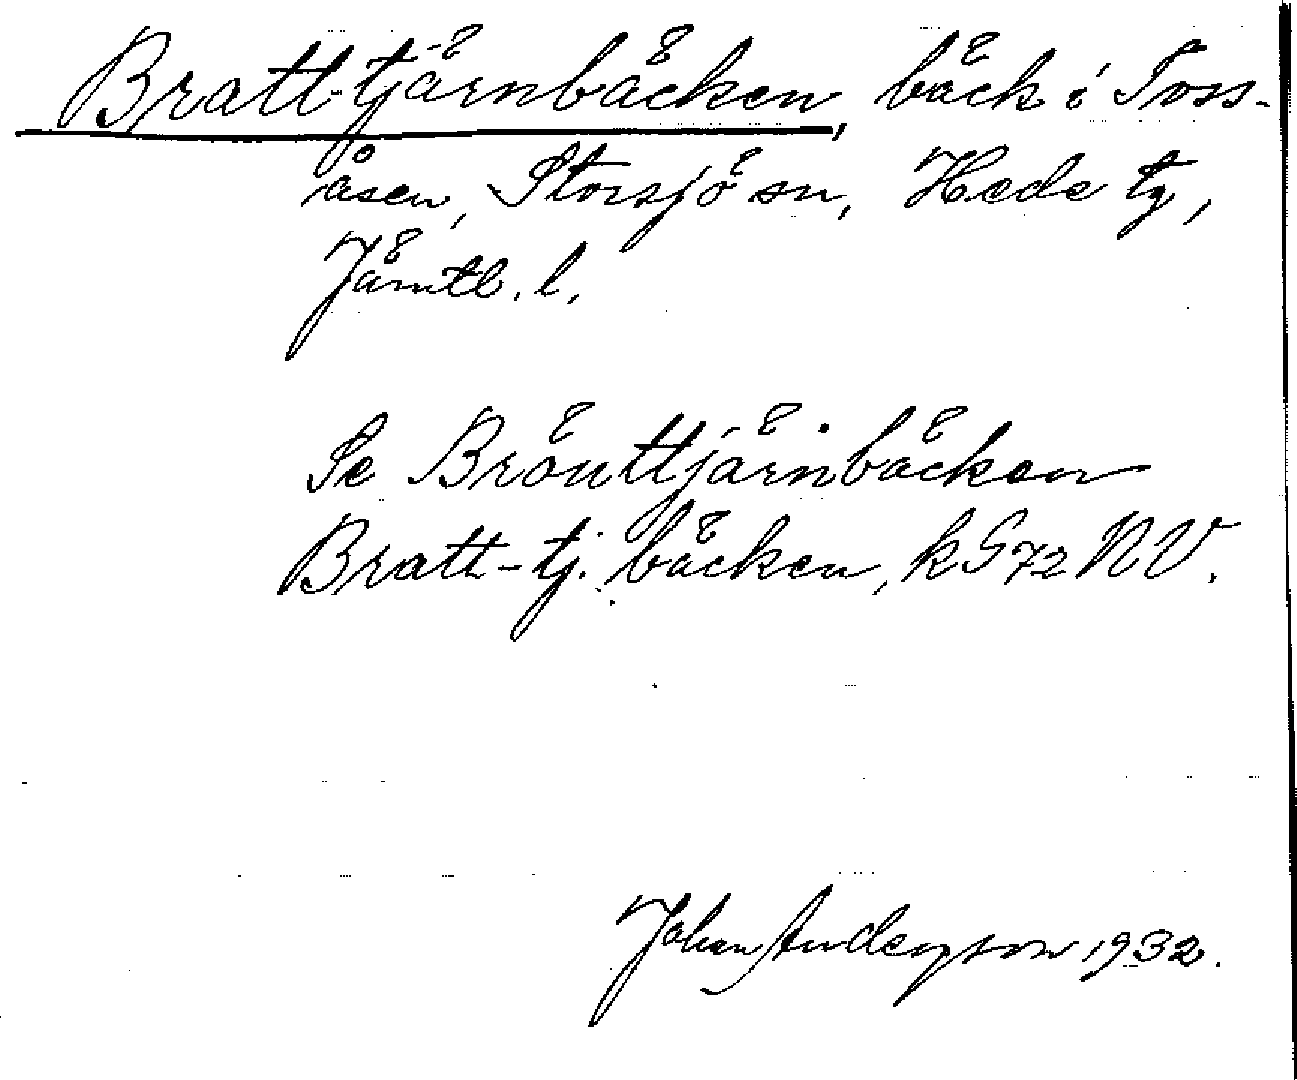 Bratt-tjärnbäcken, bäck i Toss-
åsen, Storsjö sn, Hede tg,
Jämtl. l.
Se Bröuttjärnbäcken
Bratt-tj. bäcken, k G 72 NV.
Johan Anderson 1932.